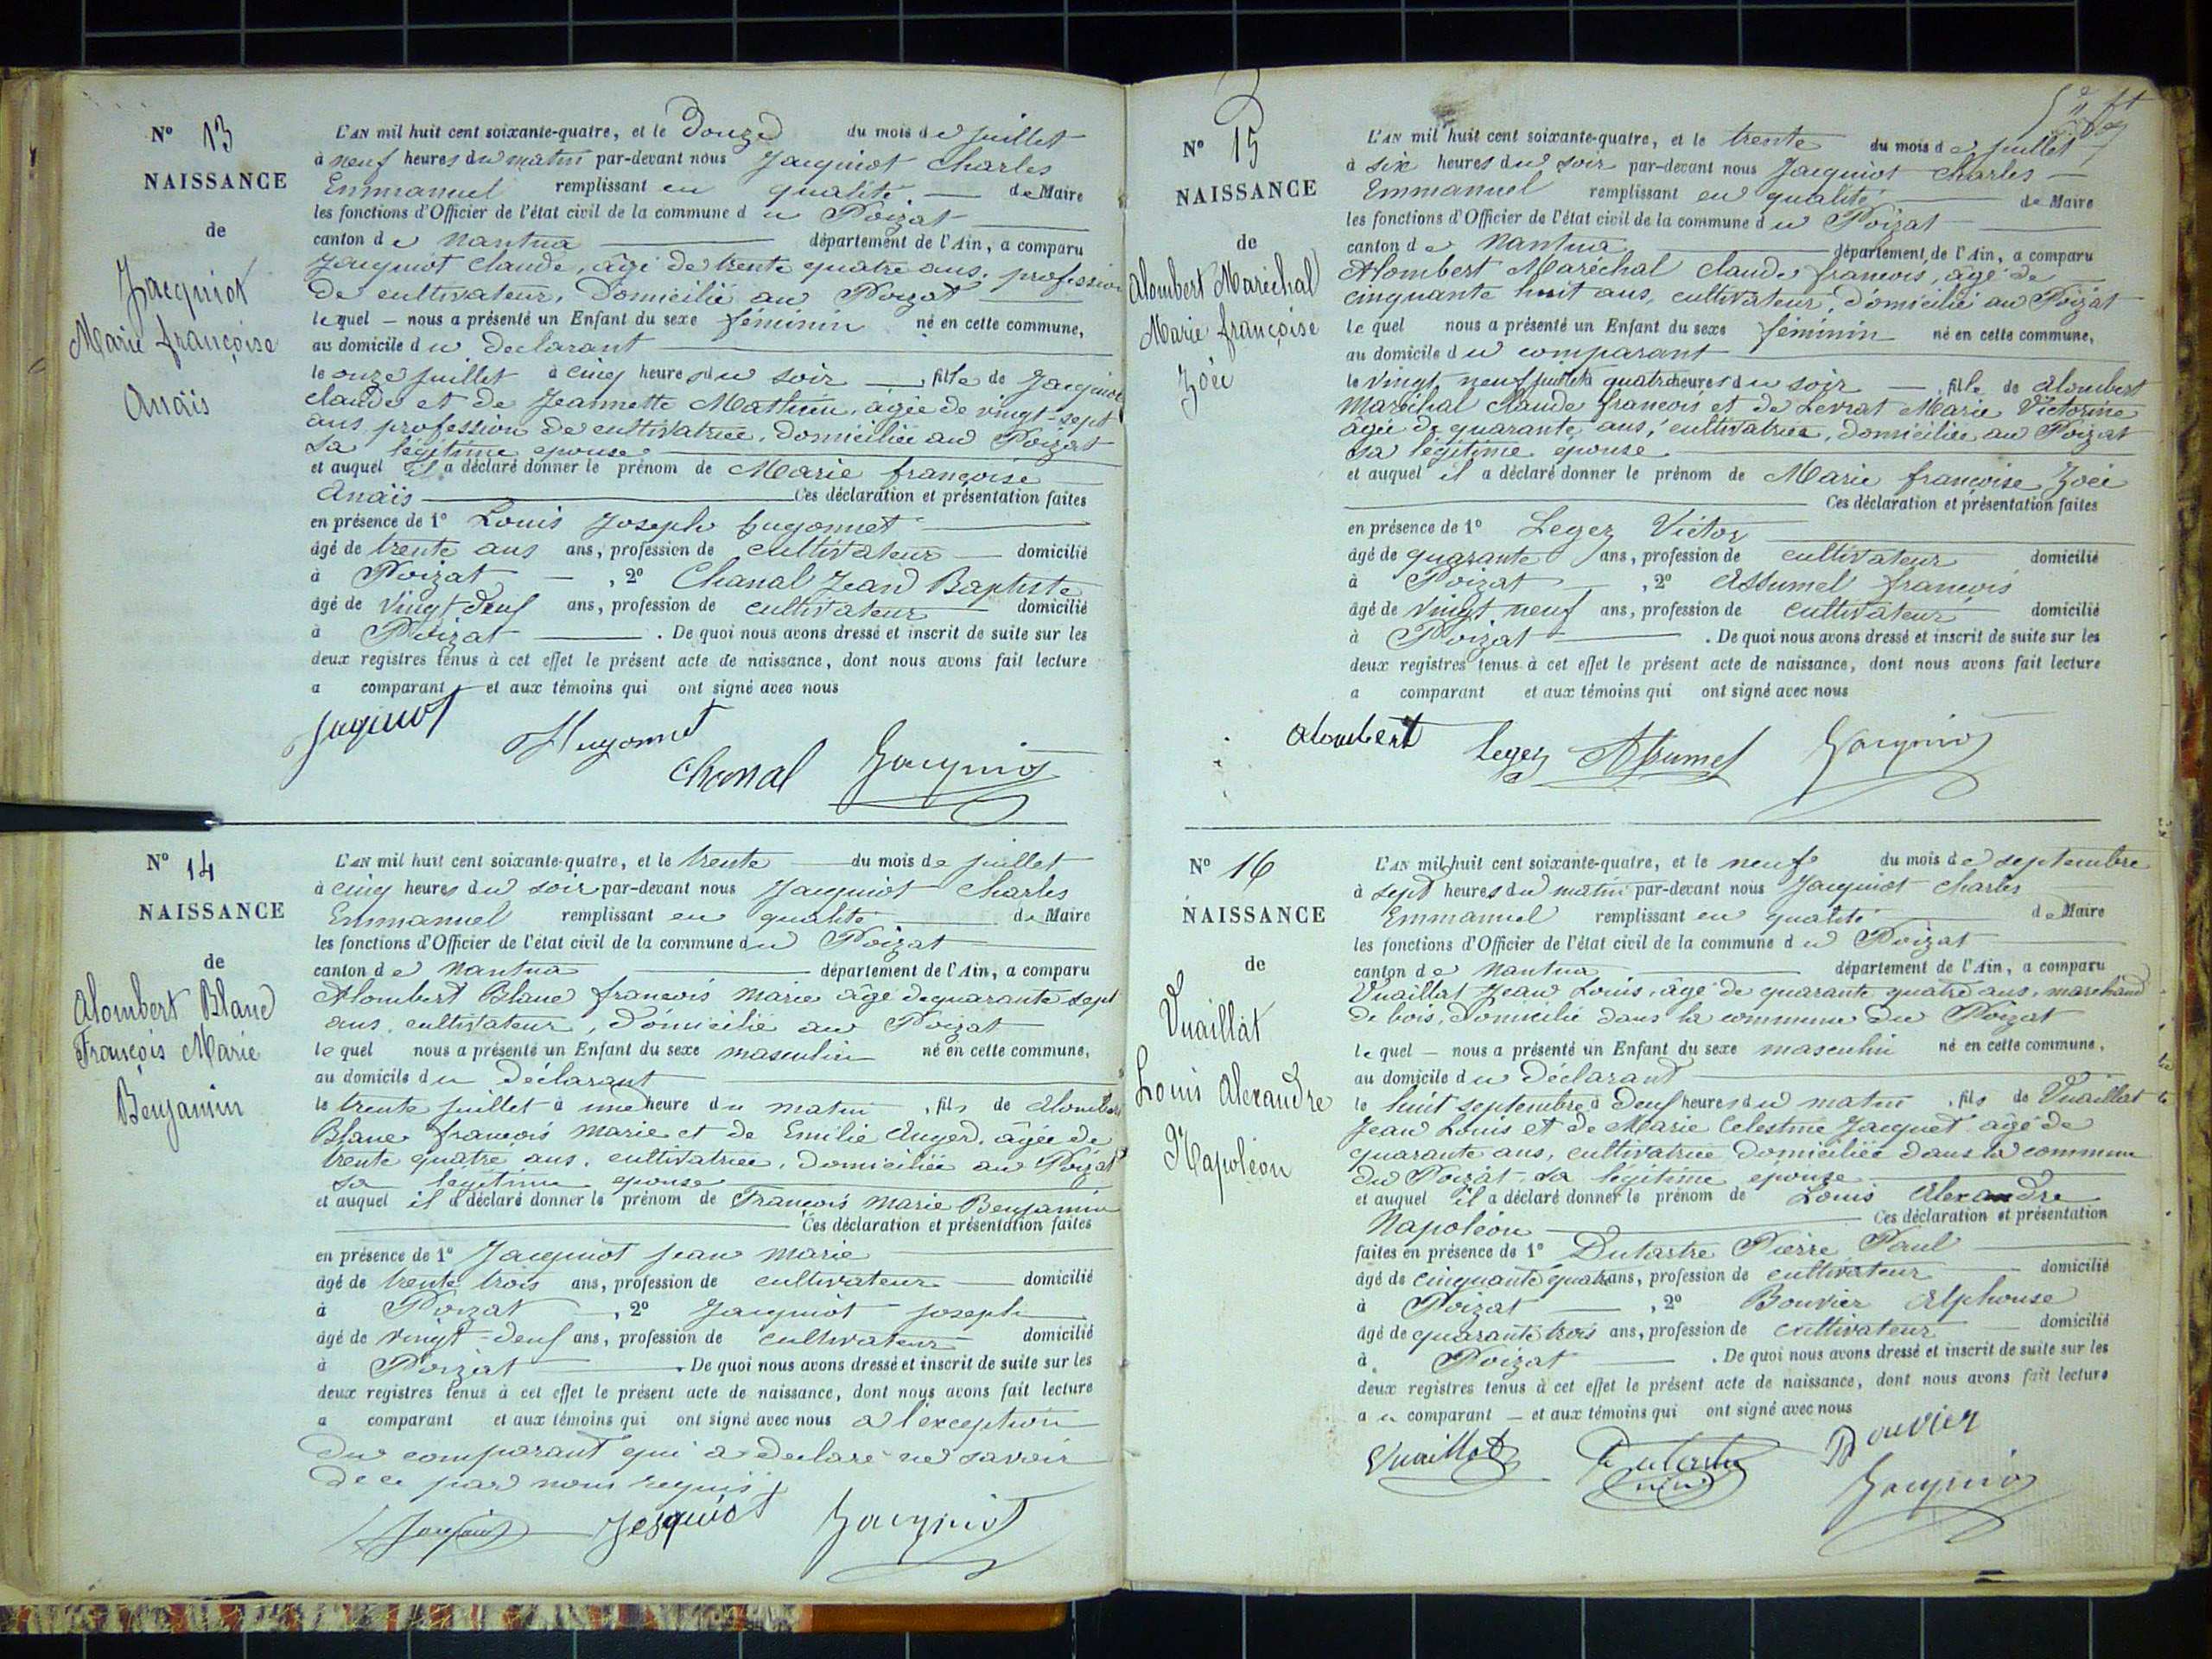 N° 13
NAISSANCE
de
Jacquiot
Marie françoise
Anaïs
L'AN mil huit cent soixante-quatre, et le Douze du mois de juillet
à neuf heures du matin par-devant nous Jacquiot Charles
Emmanuel remplissant en qualité de Maire
les fonctions d'Officier de l'état civil de la commune du Poizat
canton de Nantua département de l'Ain, a comparu
Jacquiot Claude, âgé de trente quatre ans, profession
de cultivateur, domicilié au Poizat
lequel nous a présenté un Enfant du sexe féminin né en cette commune,
au domicile du declarant
le onze juillet à cinq heures du soir fille de Jacquiot
claude et de Jeannette Mathieu, âgée de vingt sept
ans profession de cultivatrice, domiciliée au Poizat
sa légitime epouse
et auquel il a déclaré donner le prénom de Marie françoise
Anaïs Ces déclaration et présentation faites
en présence de 1° Louis Joseph hugonnet
âgé de trente ans ans, profession de cultivateur domicilié
à Poizat , 2° Chanal Jean Baptiste
âgé de vingt deuf ans, profession de cultivateur domicilié
à Poizat . De quoi nous avons dressé et inscrit de suite sur les
deux registres tenus à cet effet le présent acte de naissance, dont nous avons fait lecture
a comparant et aux témoins qui ont signé avec nous
Jaquiot Hugonnet
chanal Jacquiot
N° 14
NAISSANCE
de
Alombert Blanc
François Marie
Benjamin
L'AN mil huit cent soixante-quatre, et le trente du mois de juillet
à cinq heures du soir par-devant nous Jacquiot Charles
Emmanuel remplissant en qualité de Maire
les fonctions d'Officier de l'état civil de la commune du Poizat
canton de Nantua département de l'Ain, a comparu
Alombert Blanc françois marie âgé de quarante sept
ans, cultivateur, domicilié au Poizat
lequel nous a présenté un Enfant du sexe masculin né en cette commune,
au domicile du déclarant
le trente juillet à une heure du matin , fils de Alombert
Blanc françois marie et de Emilie Auger, âgée de
trente quatre ans, cultivatrice, domiciliée au Poizat
sa legitime epouse
et auquel il a déclaré donner le prénom de François Marie Benjamin
Ces déclaration et présentation faites
en présence de 1° Jacquiot jean marie
âgé de trente trois ans, profession de cultivateur domicilié
à Poizat , 2° Jacquiot joseph
âgé de vingt-deuf ans, profession de cultivateur domicilié
à Poizat . De quoi nous avons dressé et inscrit de suite sur les
deux registres tenus à cet effet le présent acte de naissance, dont nous avons fait lecture
a comparant et aux témoins qui ont signé avec nous a l'exception
du comparant qui a declaré ne savoir
de ce par nous requis
Jacquiot Jesquiot Jacquiot
N° 15
NAISSANCE
de
Alombert Maréchal
Marie françoise
Zoée
L'AN mil huit cent soixante-quatre, et le trente du mois de juillet
à six heures du soir par-devant nous Jacquiot Charles
Emmanuel remplissant en qualité de Maire
les fonctions d'Officier de l'état civil de la commune du Poizat
canton de Nantua département de l'Ain, a comparu
Alombert Maréchal Claude françois, âgé de
cinquante huit ans, cultivateur, domicilié au Poizat
le quel nous a présenté un Enfant du sexe féminin né en cette commune,
au domicile du comparant
le vingt neuf juillet à quatre heures du soir fille de Alombert
Maréchal Claude françois et de Levrat Marie Victorine
agée de quarante ans, cultivatrice, domiciliée au Poizat
sa légitime epouse
et auquel il a déclaré donner le prénom de Marie françoise Zoée
Ces déclaration et présentation faites
en présence de 1° Leger Victor
âgé de quarante ans, profession de cultivateur domicilié
à Poizat , 2° Assumel françois
âgé de vingt neuf ans, profession de cultivateur domicilié
à Poizat . De quoi nous avons dressé et inscrit de suite sur les
deux registres tenus à cet effet le présent acte de naissance, dont nous avons fait lecture
a comparant et aux témoins qui ont signé avec nous
alombert leger Assumel Jacquiot
N° 16
NAISSANCE
de
Vuaillat
Louis Alexandre
Napoléon
L'AN mil huit cent soixante-quatre, et le neuf du mois de septembre
à sept heures du matin par-devant nous Jacquiot Charles
Emmanuel remplissant en qualité de Maire
les fonctions d'Officier de l'état civil de la commune du Poizat
canton de Nantua département de l'Ain, a comparu
Vuaillat Jean Louis, âgé de quarante quatre ans, marchand
de bois, domicilié dans la commune du Poizat
le quel nous a présenté un Enfant du sexe masculin né en cette commune,
au domicile du Déclarant
le huit septembre à deuf heures du matin , fils de Vuaillat
Jean Louis et de Marie Celestine Jacquet âgé de
quarante ans, cultivatrice domiciliée dans la commune
du Poizat, sa légitime épouse
et auquel il a déclaré donner le prénom de Louis Alexandre
Napoléon Ces déclaration et présentation
faites en présence de 1° Dutartre Pierre Paul
âgé de cinquante quatre ans, profession de cultivateur domicilié
à Poizat , 2° Bouvier Alphonse
âgé de quarante trois ans, profession de cultivateur domicilié
à Poizat . De quoi nous avons dressé et inscrit de suite sur les
deux registres tenus à cet effet le présent acte de naissance, dont nous avons fait lecture
au comparant et aux témoins qui ont signé avec nous
Vuaillat Dutartre Bouvier
Jacquiot